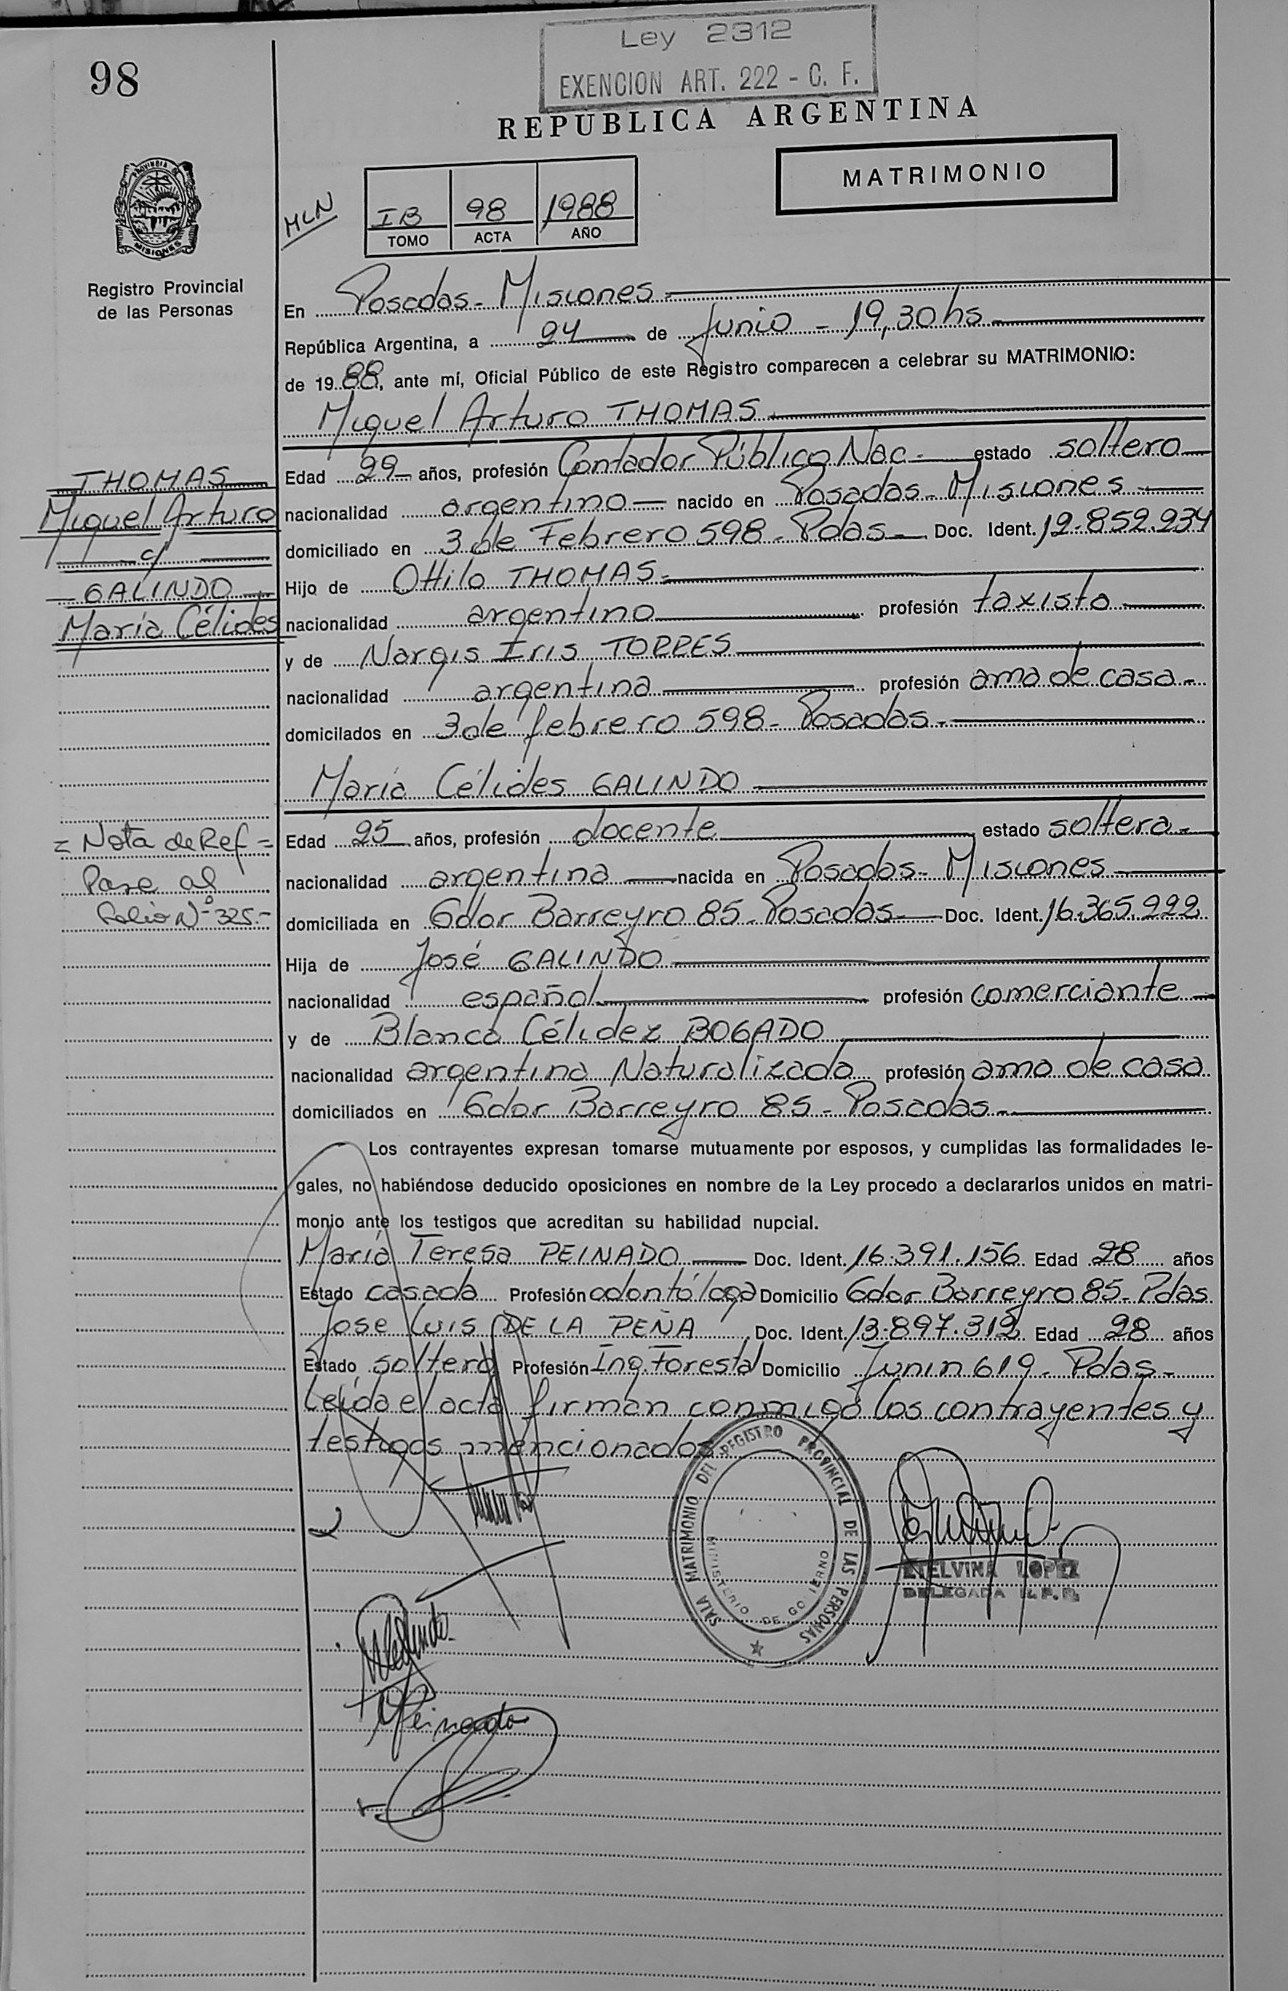 Ley 2312
EXENCION ART. 222 - C. F.
98
REPUBLICA ARGENTINA
MATRIMONIO
PROVINCIA DE MISIONES
MLN
IB 98 1988
TOMO ACTA AÑO
Registro Provincial
de las Personas
En Posadas - Misiones
República Argentina, a 24 de Junio - 19,30 hs
de 1988, ante mí, Oficial Público de este Registro comparecen a celebrar su MATRIMONIO:
Miguel Arturo THOMAS
THOMAS
Miguel Arturo
c/
GALINDO
María Célides
Edad 29 años, profesión Contador Público Nac. estado soltero
nacionalidad argentino nacido en Posadas - Misiones
domiciliado en 3 de Febrero 598 - Pdas Doc. Ident. 12.852.234
Hijo de Ottilo THOMAS
nacionalidad argentino profesión taxista
y de Nargis Iris TORRES
nacionalidad argentina profesión ama de casa
domicilados en 3 de febrero 598 - Posadas
María Célides GALINDO
= Nota de Ref =
Pase al
folio Nº 325.-
Edad 25 años, profesión docente estado soltera
nacionalidad argentina nacida en Posadas - Misiones
domiciliada en Gdor Barreyro 85 - Posadas Doc. Ident. 16.365.222
Hija de José GALINDO
nacionalidad español profesión comerciante
y de Blanca Célidez BOGADO
nacionalidad argentina Naturalizada profesión ama de casa
domiciliados en Gdor Barreyro 85 - Posadas
Los contrayentes expresan tomarse mutuamente por esposos, y cumplidas las formalidades le-
gales, no habiéndose deducido oposiciones en nombre de la Ley procedo a declararlos unidos en matri-
monio ante los testigos que acreditan su habilidad nupcial.
María Teresa PEINADO Doc. Ident. 16.391.156 Edad 28 años
Estado casada Profesión odontóloga Domicilio Gdor Barreyro 85 - Pdas
Jose Luis DE LA PEÑA Doc. Ident. 13.897.312 Edad 28 años
Estado soltero Profesión Ing. Forestal Domicilio Junin 619 - Pdas -
Leída el acta firman conmigo los contrayentes y
testigos mencionados
SALA MATRIMONIO DEL REGISTRO PROVINCIAL DE LAS PERSONAS
MINISTERIO DE GOBIERNO
ETELVINA LOPEZ
DELEGADA R. P. P.
MPeinado